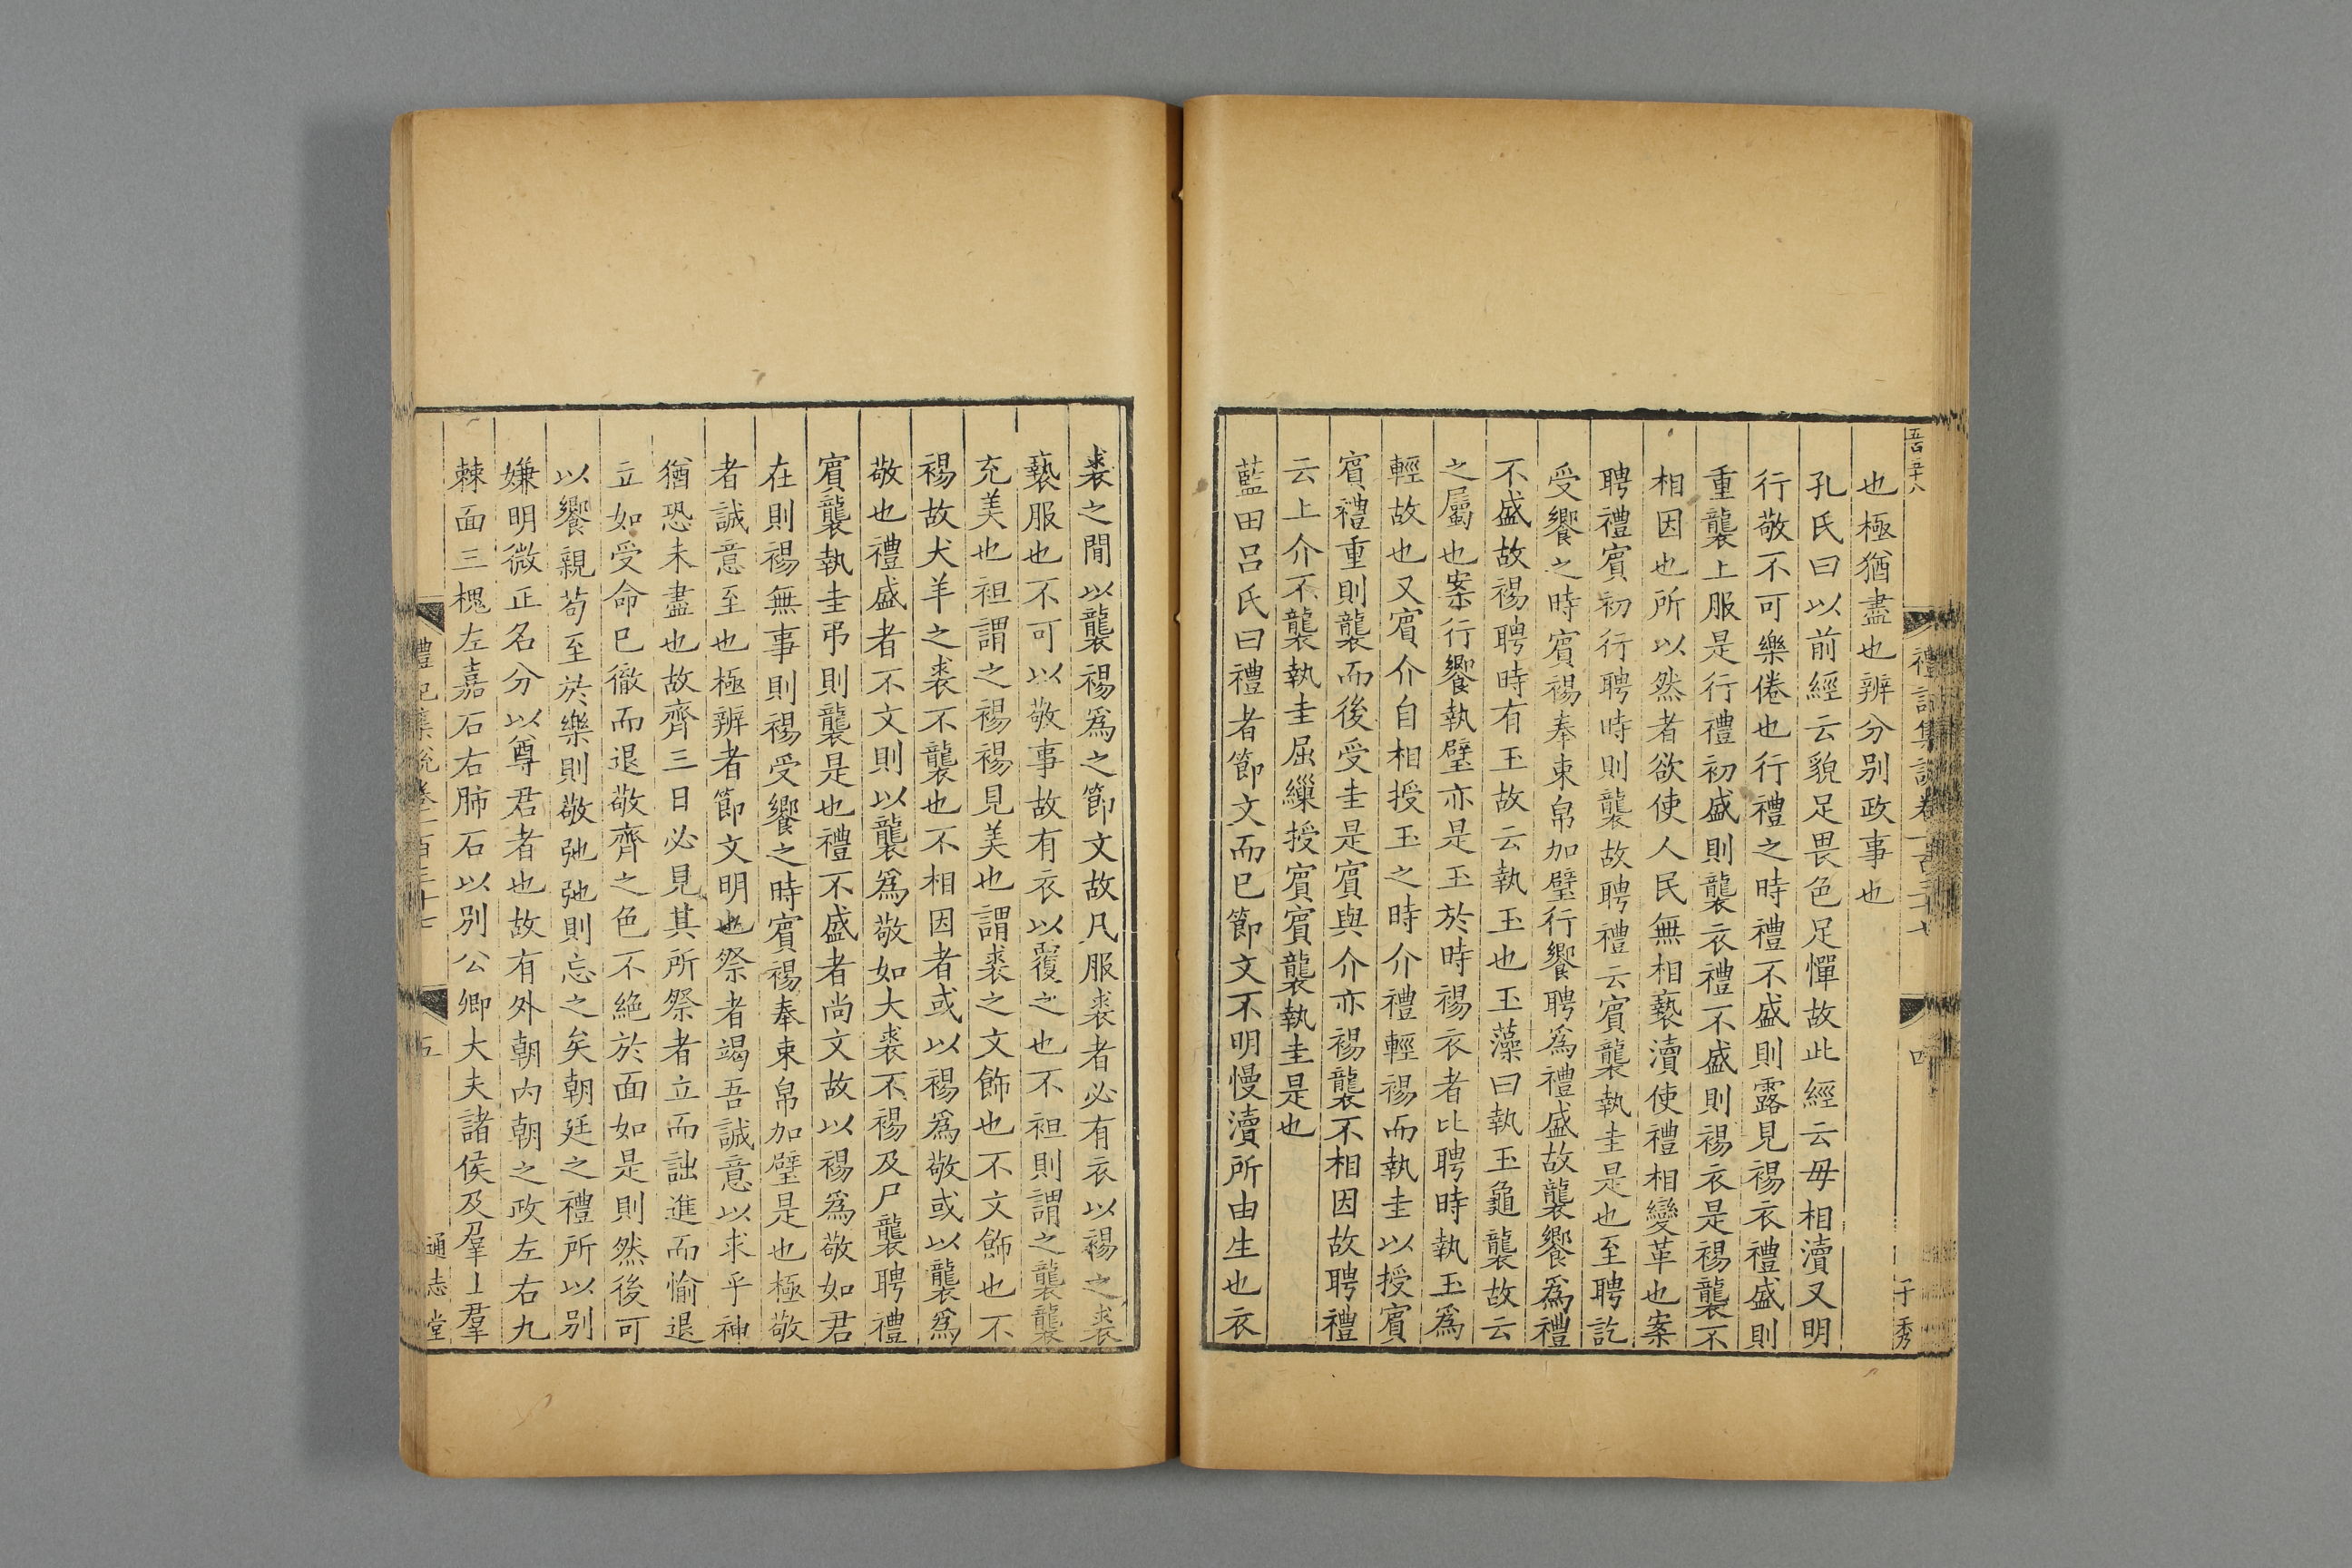 禮記集說卷一百三十七
四
于秀
也極猶盡也辨分别政事也
孔氏曰以前經云貌足畏色足憚故此經云毋相瀆又明
行敬不可樂倦也行禮之時禮不盛則露見裼衣禮盛則
重襲上服是行禮初盛則襲衣禮不盛則裼衣是裼襲不
相因也所以然者欲使人民無相褻瀆使禮相變革也案
聘禮賓初行聘時則襲故聘禮云賓襲執圭是也至聘訖
受饗之時賓裼奉束帛加璧行饗聘爲禮盛故襲饗爲禮
不盛故裼聘時有玉故云執玉也玉藻曰執玉龜襲故云
之屬也案行饗執璧亦是玉於時裼衣者比聘時執玉爲
輕故也又賓介自相授玉之時介禮輕裼而執圭以授賓
賓禮重則襲而後受圭是賓與介亦裼襲不相因故聘禮
云上介不襲執圭屈繅授賓賓襲執圭是也
藍田吕氏曰禮者節文而已節文不明慢瀆所由生也衣
裘之閒以襲裼爲之節文故凡服裘者必有衣以裼之裘
褻服也不可以敬事故有衣以覆之也不袒則謂之襲襲
充美也袒謂之裼裼見美也謂裘之文飾也不文飾也不
裼故犬羊之裘不襲也不相因者或以裼爲敬或以襲爲
敬也禮盛者不文則以襲爲敬如大裘不裼及尸襲聘禮
賓襲執圭弔則襲是也禮不盛者尚文故以裼爲敬如君
在則裼無事則裼受饗之時賓裼奉束帛加璧是也極敬
者誠意至也極辨者節文明也祭者竭吾誠意以求乎神
猶恐未盡也故齊三日必見其所祭者立而詘進而愉退
立如受命已徹而退敬齊之色不絶於面如是則然後可
以饗親苟至於樂則敬弛弛則忘之矣朝廷之禮所以别
嫌明微正名分以尊君者也故有外朝内朝之政左右九
棘面三槐左嘉石右肺石以别公卿大夫諸侯及羣士羣
禮記集說卷一百三十七
五
通志堂